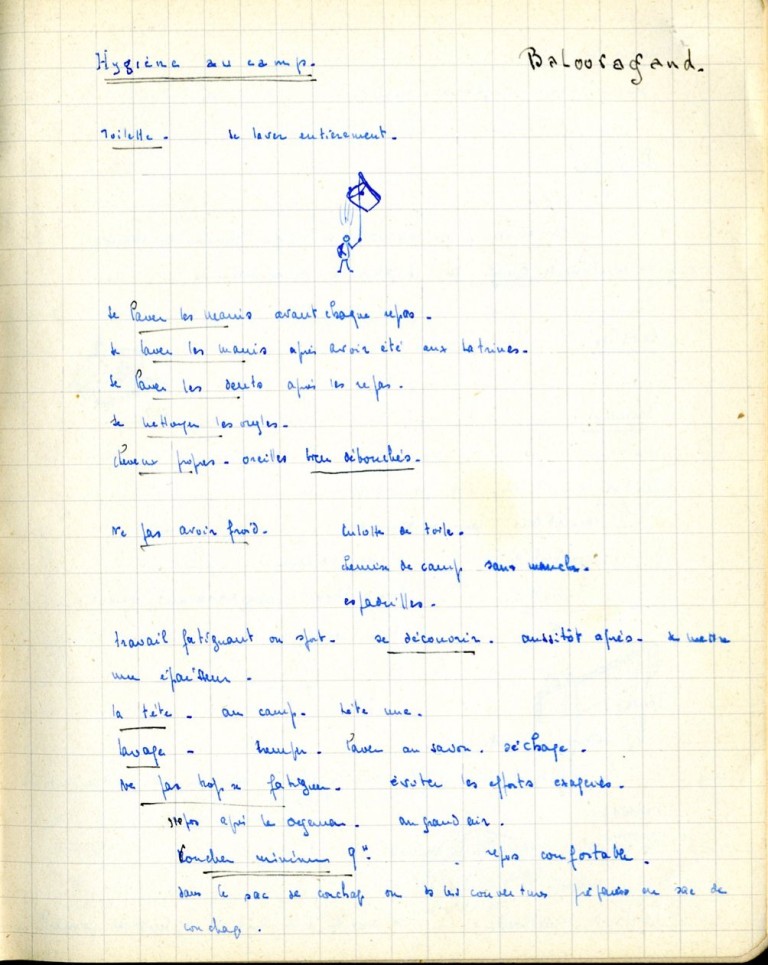 Hygiène au camp. Balouragand.
Toilette. Se laver entièrement.
Se laver les mains avant chaque repas.
Se laver les mains après avoir été aux latrines.
Se laver les dents après les repas.
Se nettoyer les ongles.
cheveux propres - oreilles bien débouchés.
Ne pas avoir froid. Culotte de toile.
chemise de camp sans manche.
espadrilles.
travail fatiguant ou sport. se découvrir. aussitôt après. se mettre
une épaisseur.
la tête - au camp. tête nue.
lavage - laver au savon. séchage.
Ne pas trop se fatiguer. éviter les efforts exagérés.
repos après le au grand air.
Coucher minimum 9h. repos confortable.
dans le sac de couchage ou ds les couvertures préparées en sac de
couchage.